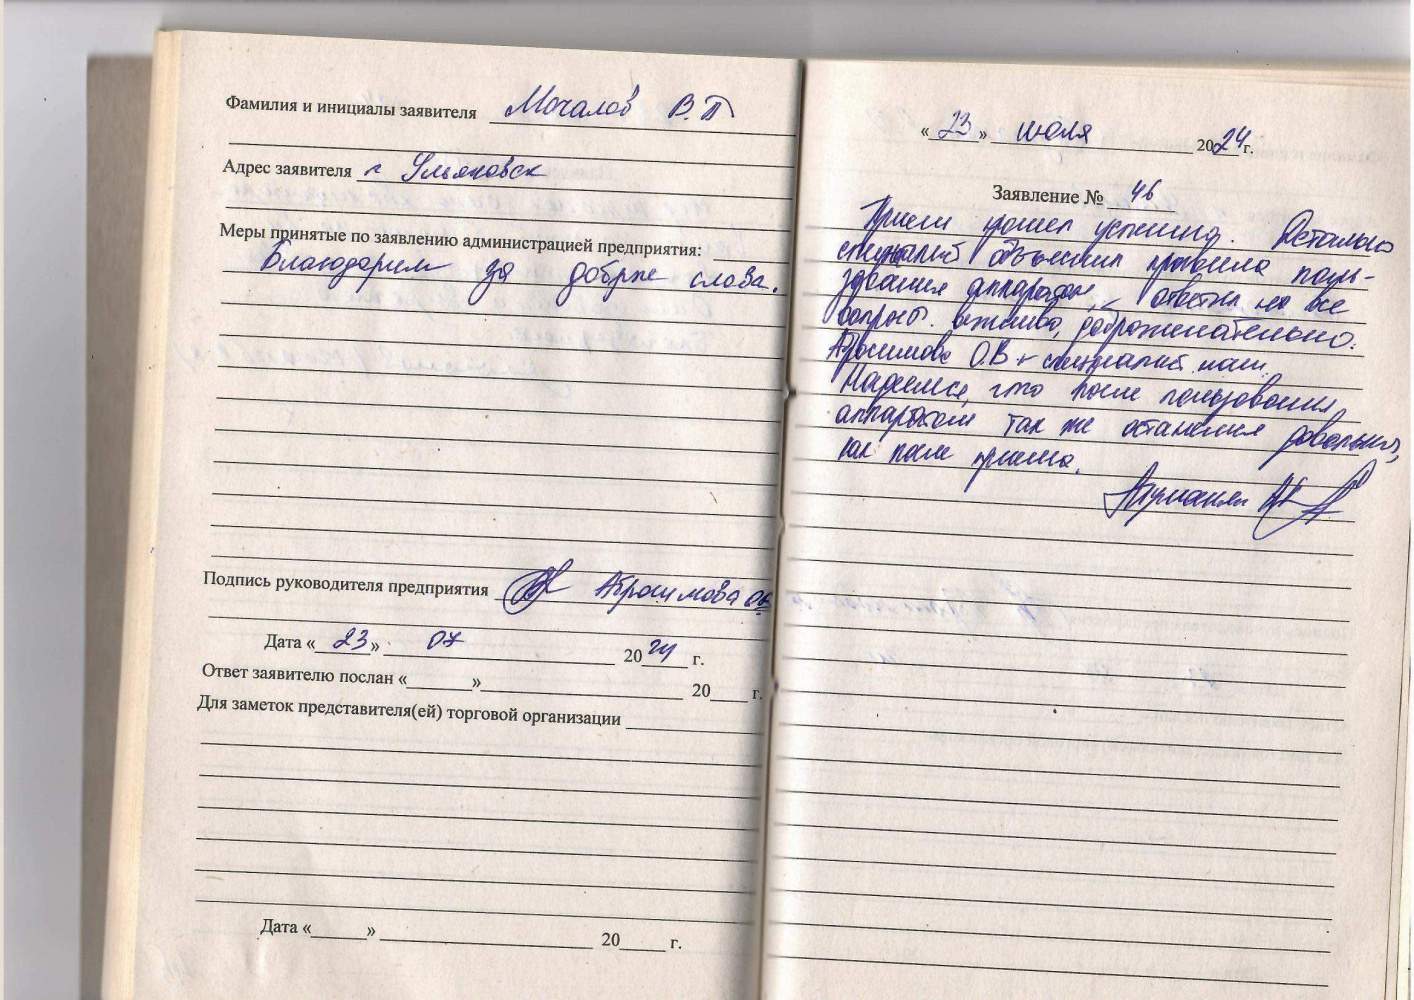 Фамилия и инициалы заявителя Мочалов В.П
Адрес заявителя г Ульяновск
Меры принятые по заявлению администрацией предприятия:
Благодарим за добрые слова.
Подпись руководителя предприятия Абросимова ОВ
Дата «23» 07 2024 г.
Ответ заявителю послан «______»__________ 20____ г.
Для заметок представителя(ей) торговой организации
Дата «______» __________ 20_____ г.
«23» июля 2024 г.
Заявление № 46
Прием прошел успешно. Детально
специалист объяснил правила поль-
зования аппаратом, ответил на все
вопросы. вежливо, доброжелательно.
Абросимова О.В - специалист
Надеемся, что после пользования
аппаратом так же останемся довольны,
как после приема.